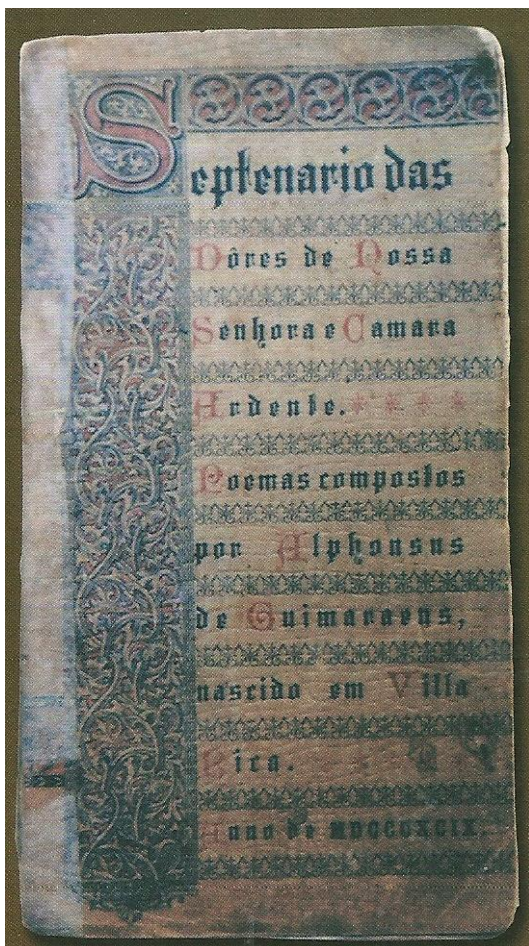 Septenario das
Dôres de Nossa
Senhora e Camara
Ardente. * * * *
Poemas compostos
por Alphonsus
de Guimaraens,
nascido em Villa
Rica.
Anno de MDCCCXCIX.